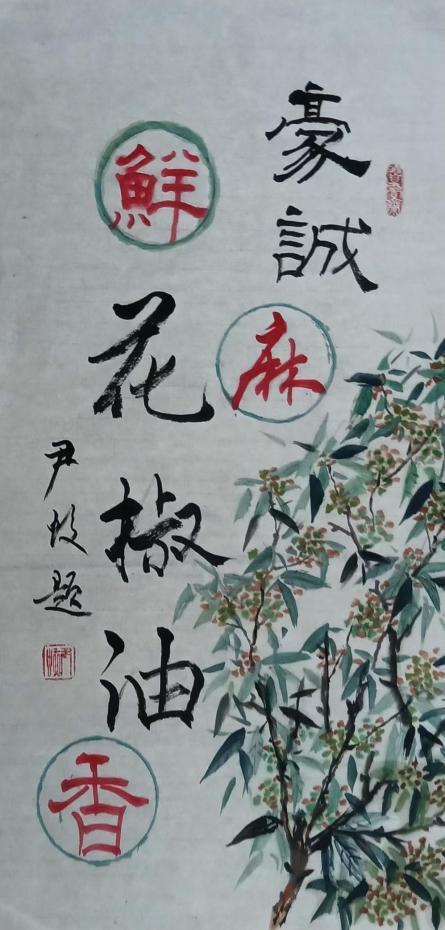 豪誠
麻
鮮
花椒油
香
尹蛟題